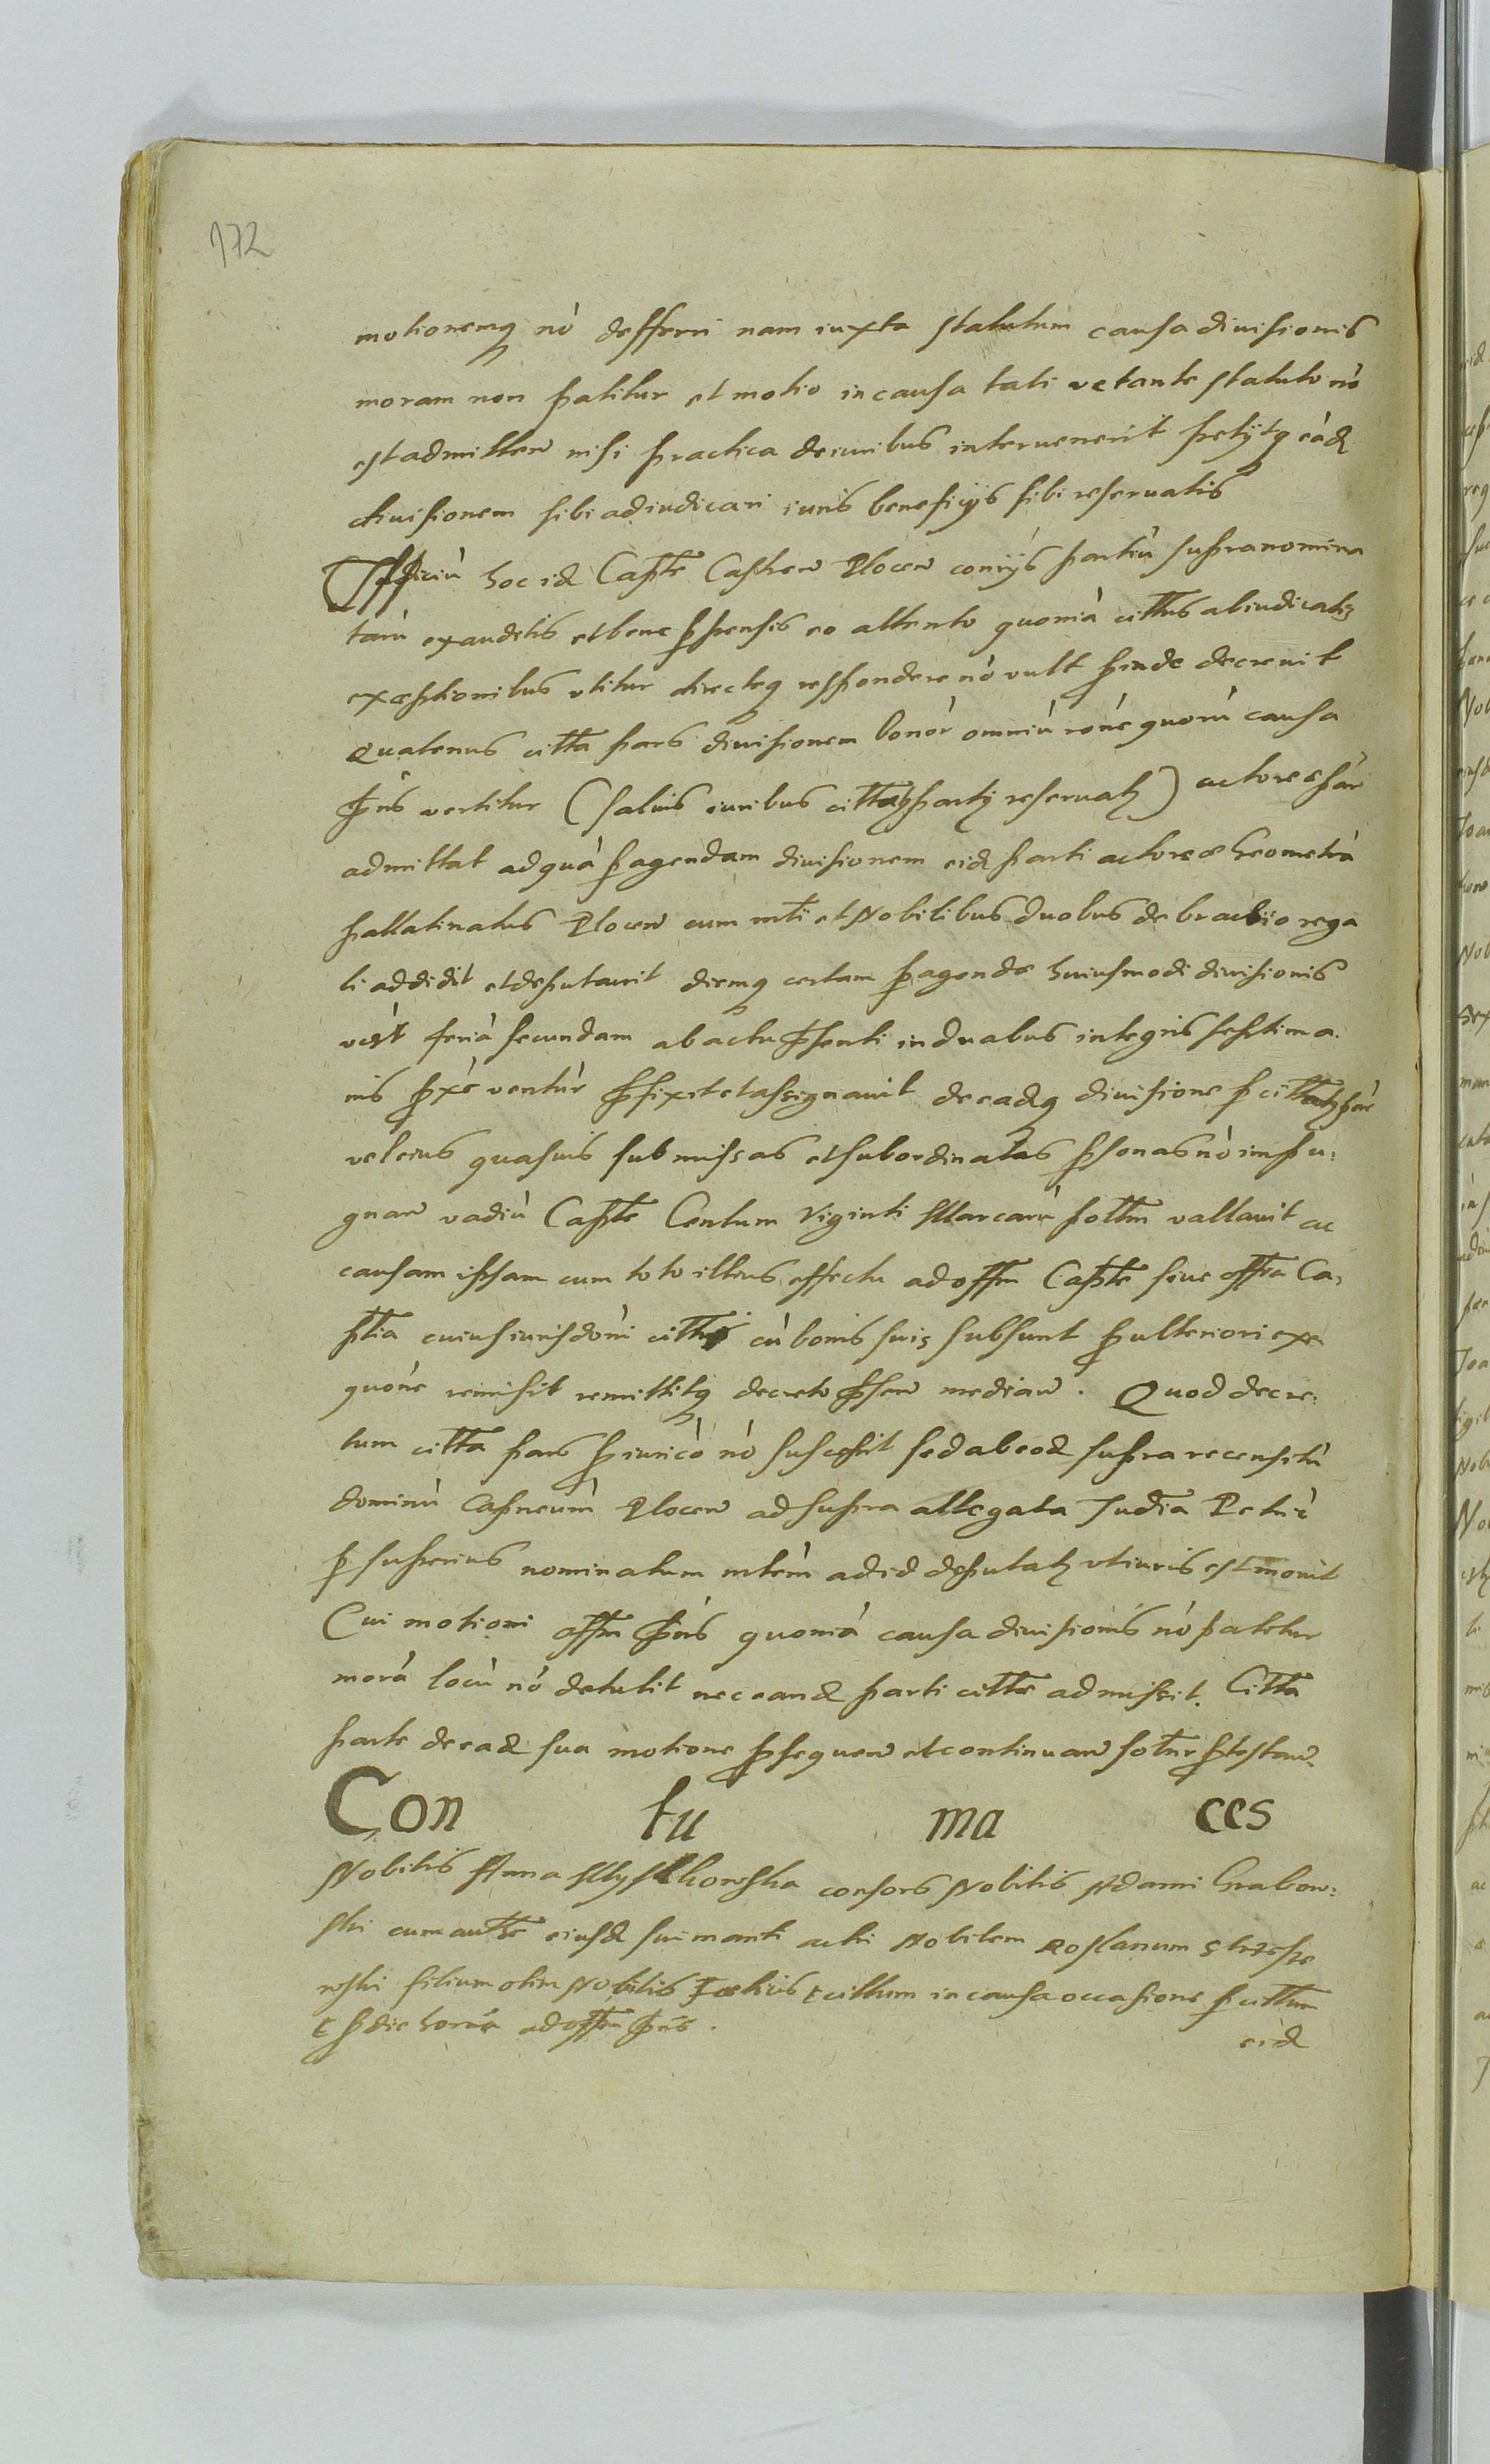 172
motionemq nò defferri nam iuxta statutum causa divisionis
moram non patitur et motio in causa tali vetante statuto nò
est admitten nisi practica de iuribus intervenerit petytq eàd
divisionem sibi adiudicari iuris beneficijs sibi reservatis
Officiù hoc id Capte Castren Plocen partiù supranomina
tarù exauditis et bene ppensis eo attento quonià cittus abiudicatis
exceptionibus utitur directeq respondere nò vult pinde decrevit
Quatenus citta pars divisionem bonòr omniù ròne quorù causa
pns vertitur (salvis iuribus citta parti reservatis) actorea pàr
admittat ad quà pagendam divisionem eid parti actoreae Geometrà
pallatinatus Plocen cum mti et Nobilibus duobus de brachio rega
li addidit et deputavit diemq certam pagendae huiusmodi divisionis
vèt ferià secundam ab actu psenti in duabus integris septima
nis pxè ventùr pfixit et assignavit de eadq divisione p citta pàr
vel eius quasvis submissas et subordinatas psonas nò impu:
gnan vadiù Capte Centum Viginti Marcarù pottm vallavit ac
causam ipsam cum toto illius effectu ad offm Capte sive offia Ca,
ptia cuius iurisdòni citti cù bonis suis subsunt p ulteriori exe
quòne remisit remittitq decreto psen median. Quod decre:
tum citta pars p iurico nò suscepit sed ab eod supra recensitù
dominù Capneum Plocen ad supra allegata Judia Petric
p superius nominatum mtèm ad id deputat ut iuris est movit
Cui motioni offm pns quonià causa divisionis nò patitur
morà locù nò detulit nec eand parti citte admissit. Citta
parte de ead sua motione psequen et continuan sotnr ptestan.
Con tu ma ces
Nobilis Anna consors Nobilis Adami Grabow:
ski cum autte eiusd sui mariti actri Nobilem Roslanum Strzesze
wski filium olim Nobilis cittum in causa occasione p cittm
t p die horùr ad offm pns.
eid